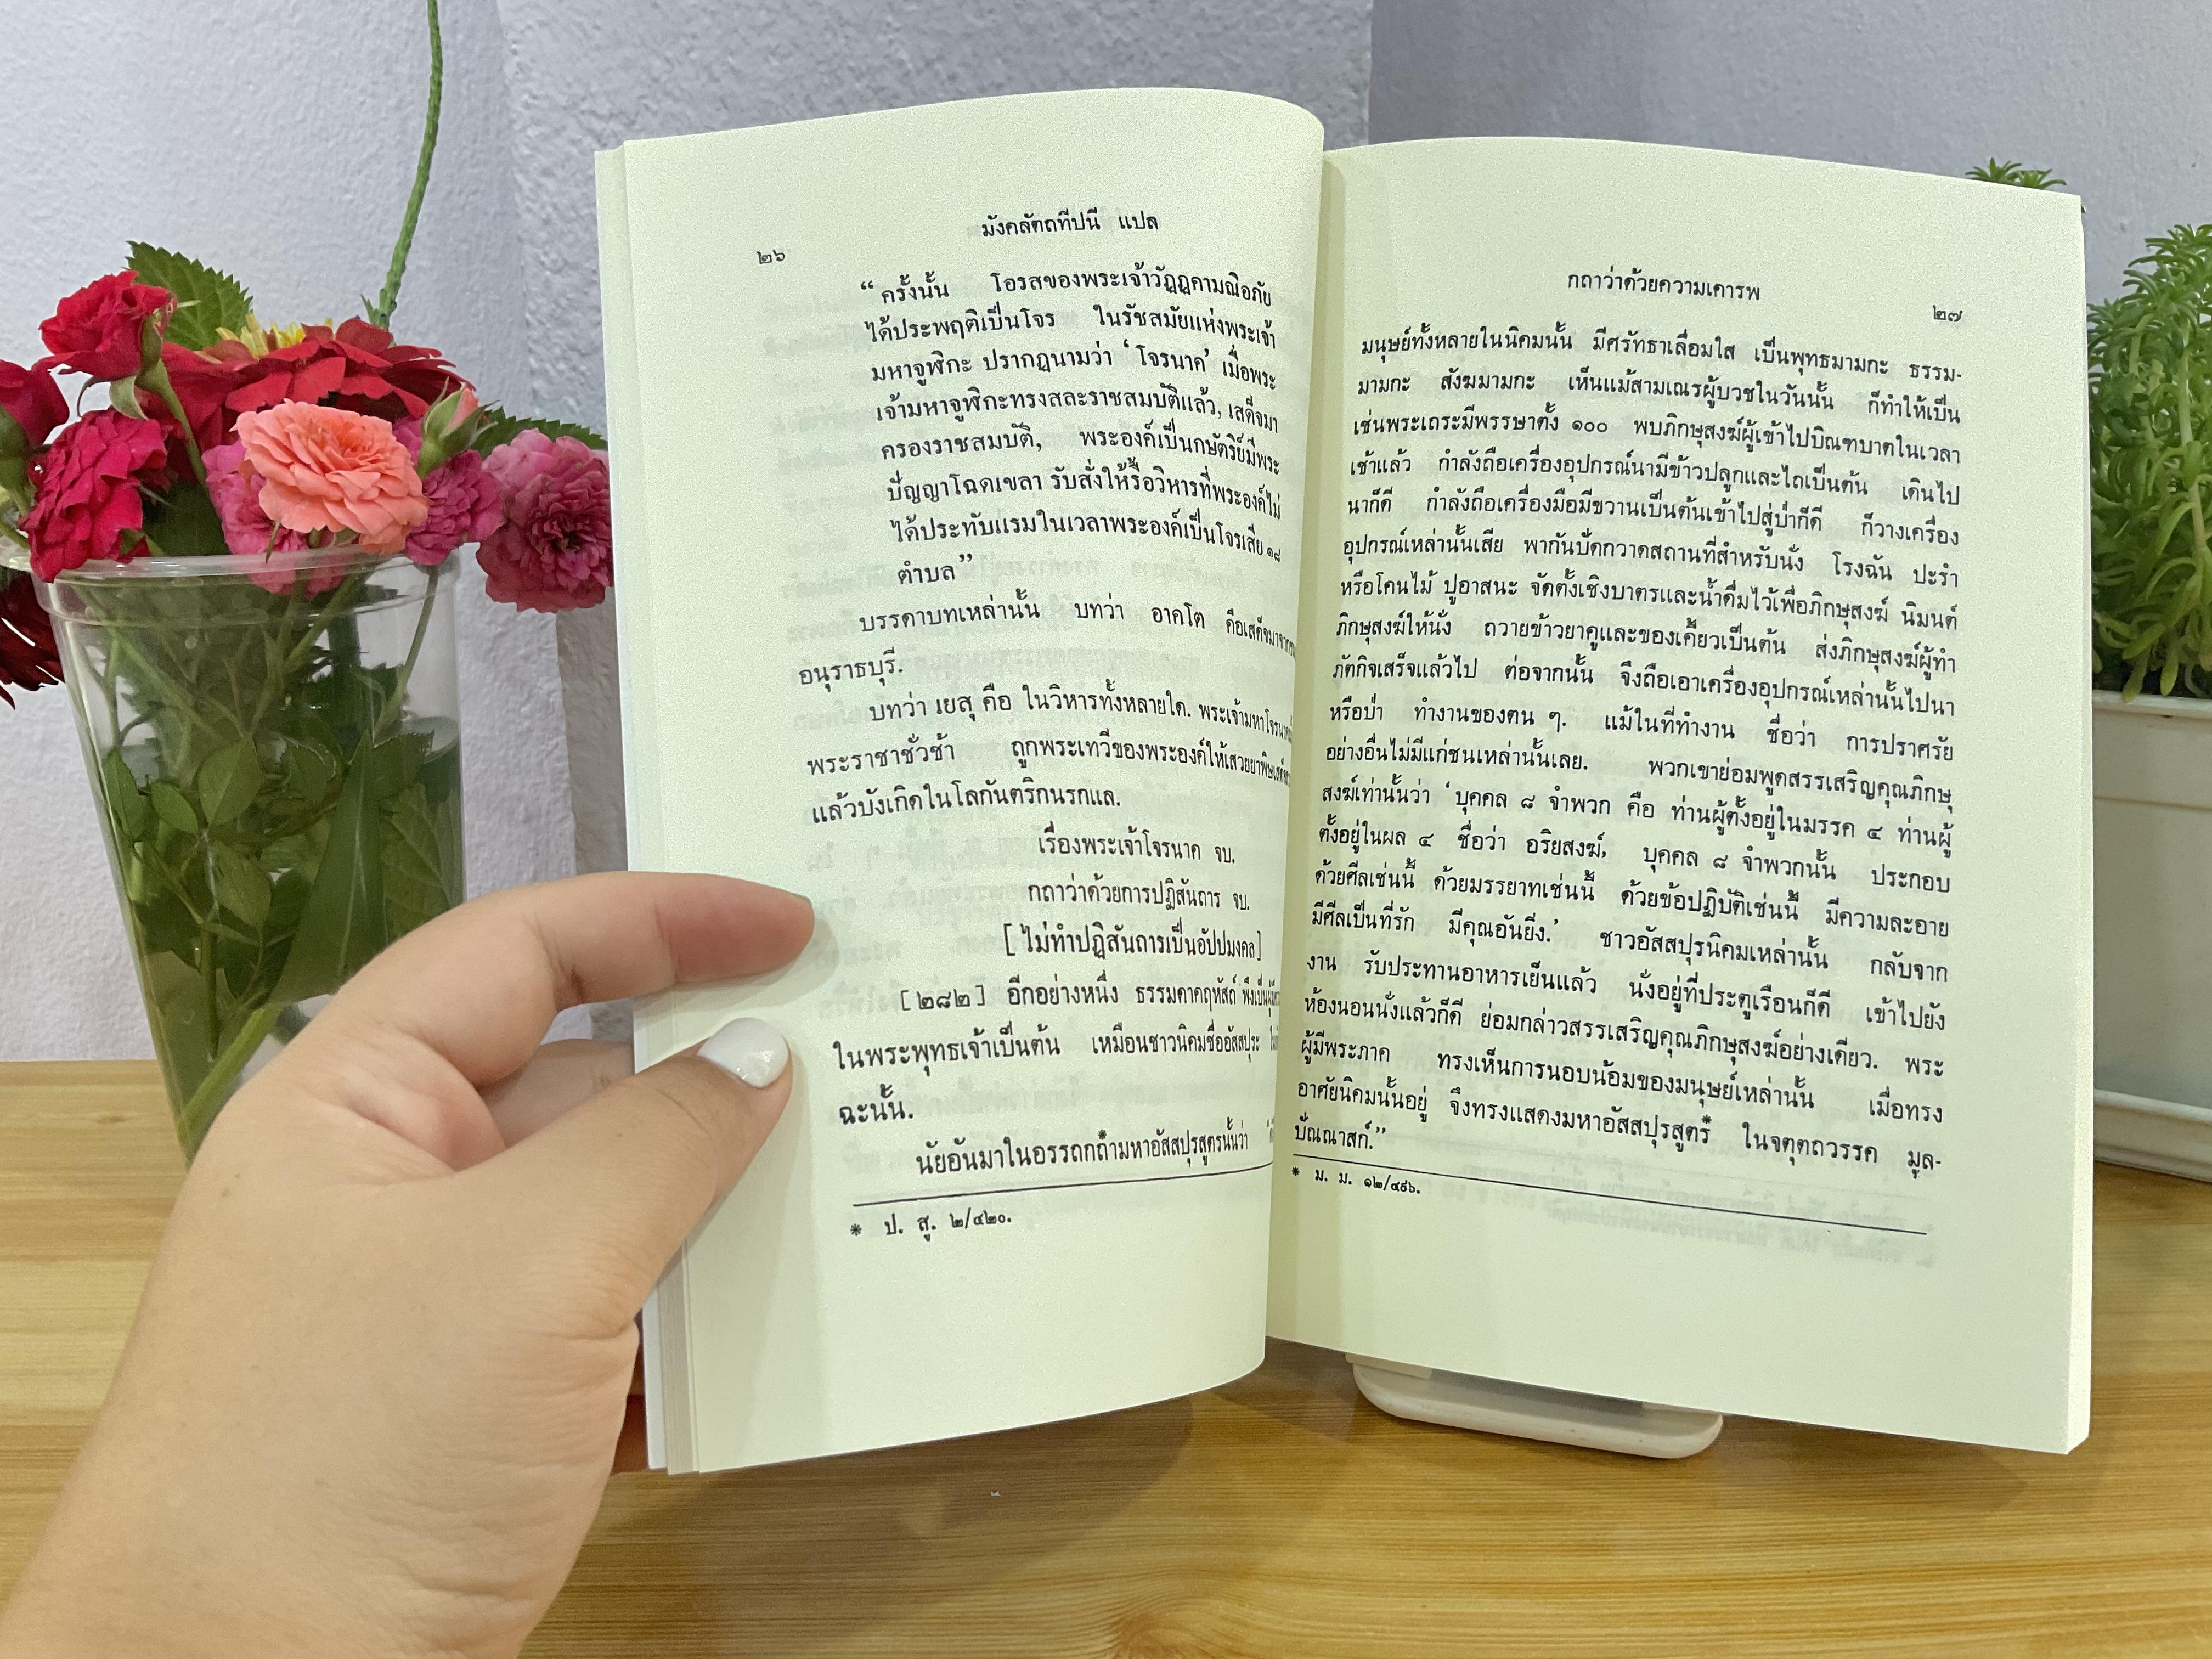 ๒๖
มังคลัตถทีปนี แปล
“ครั้งนั้น โอรสของพระเจ้าวัฏฏคามณิอภัย
ได้ประพฤติเป็นโจร ในรัชสมัยแห่งพระเจ้า
มหาจูฬิกะ ปรากฏนามว่า ‘โจรนาค’ เมื่อพระ
เจ้ามหาจูฬิกะทรงสละราชสมบัติแล้ว, เสด็จมา
ครองราชสมบัติ, พระองค์เป็นกษัตริย์มีพระ
ปัญญาโฉดเขลา รับสั่งให้รื้อวิหารที่พระองค์ไม่
ได้ประทับแรมในเวลาพระองค์เป็นโจรเสีย ๑๘
ตำบล”
บรรดาบทเหล่านั้น บทว่า อาคโต คือเสด็จมาจาก
อนุราธบุรี.
บทว่า เยสุ คือ ในวิหารทั้งหลายใด. พระเจ้ามหาโจรนาค
พระราชาชั่วช้า ถูกพระเทวีของพระองค์ให้เสวยยาพิษ
แล้วบังเกิดในโลกันตริกนรกแล.
เรื่องพระเจ้าโจรนาค จบ.
กถาว่าด้วยการปฏิสันถาร จบ.
[ ไม่ทำปฏิสันถารเป็นอัปปมงคล]
[ ๒๘๒ ] อีกอย่างหนึ่ง ธรรมดาคฤหัสถ์ พึงเป็นผู้
ในพระพุทธเจ้าเป็นต้น เหมือนชาวนิคมชื่ออัสสปุระ
ฉะนั้น.
นัยอันมาในอรรถกถา*มหาอัสสปุรสูตรนั้นว่า
* ป. สู. ๒/๔๒๐.
กถาว่าด้วยความเคารพ
๒๗
มนุษย์ทั้งหลายในนิคมนั้น มีศรัทธาเลื่อมใส เป็นพุทธมามกะ ธรรม-
มามกะ สังฆมามกะ เห็นแม้สามเณรผู้บวชในวันนั้น ก็ทำให้เป็น
เช่นพระเถระมีพรรษาตั้ง ๑๐๐ พบภิกษุสงฆ์ผู้เข้าไปบิณฑบาตในเวลา
เช้าแล้ว กำลังถือเครื่องอุปกรณ์นามีข้าวปลูกและไถเป็นต้น เดินไป
นาก็ดี กำลังถือเครื่องมือมีขวานเป็นต้นเข้าไปสู่ป่าก็ดี ก็วางเครื่อง
อุปกรณ์เหล่านั้นเสีย พากันปัดกวาดสถานที่สำหรับนั่ง โรงฉัน ปะรำ
หรือโคนไม้ ปูอาสนะ จัดตั้งเชิงบาตรและน้ำดื่มไว้เพื่อภิกษุสงฆ์ นิมนต์
ภิกษุสงฆ์ให้นั่ง ถวายข้าวยาคูและของเคี้ยวเป็นต้น ส่งภิกษุสงฆ์ผู้ทำ
ภัตกิจเสร็จแล้วไป ต่อจากนั้น จึงถือเอาเครื่องอุปกรณ์เหล่านั้นไปนา
หรือป่า ทำงานของตน ๆ. แม้ในที่ทำงาน ชื่อว่า การปราศรัย
อย่างอื่นไม่มีแก่ชนเหล่านั้นเลย. พวกเขาย่อมพูดสรรเสริญคุณภิกษุ
สงฆ์เท่านั้นว่า ‘บุคคล ๘ จำพวก คือ ท่านผู้ตั้งอยู่ในมรรค ๔ ท่านผู้
ตั้งอยู่ในผล ๔ ชื่อว่า อริยสงฆ์, บุคคล ๘ จำพวกนั้น ประกอบ
ด้วยศีลเช่นนี้ ด้วยมรรยาทเช่นนี้ ด้วยข้อปฏิบัติเช่นนี้ มีความละอาย
มีศีลเป็นที่รัก มีคุณอันยิ่ง.’ ชาวอัสสปุรนิคมเหล่านั้น กลับจาก
งาน รับประทานอาหารเย็นแล้ว นั่งอยู่ที่ประตูเรือนก็ดี เข้าไปยัง
ห้องนอนนั่งแล้วก็ดี ย่อมกล่าวสรรเสริญคุณภิกษุสงฆ์อย่างเดียว. พระ
ผู้มีพระภาค ทรงเห็นการนอบน้อมของมนุษย์เหล่านั้น เมื่อทรง
อาศัยนิคมนั้นอยู่ จึงทรงแสดงมหาอัสสปุรสูตร* ในจตุตถวรรค มูล-
ปัณณาสก์.”
* ม. ม. ๑๒/๔๙๖.